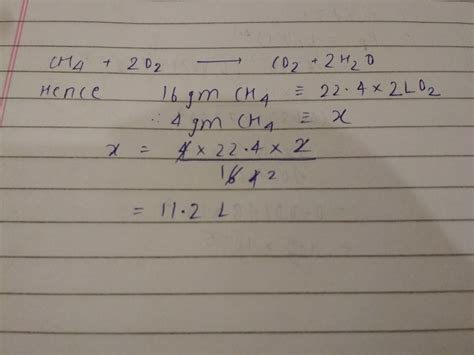 CH4 + 2O2 ⟶ CO2 + 2H2O
Hence 16 gm CH4 ≡ 22.4 × 2 L O2
∴ 4 gm CH4 ≡ x
x = 4 × 22.4 × 2
16 4 2
= 11.2 L